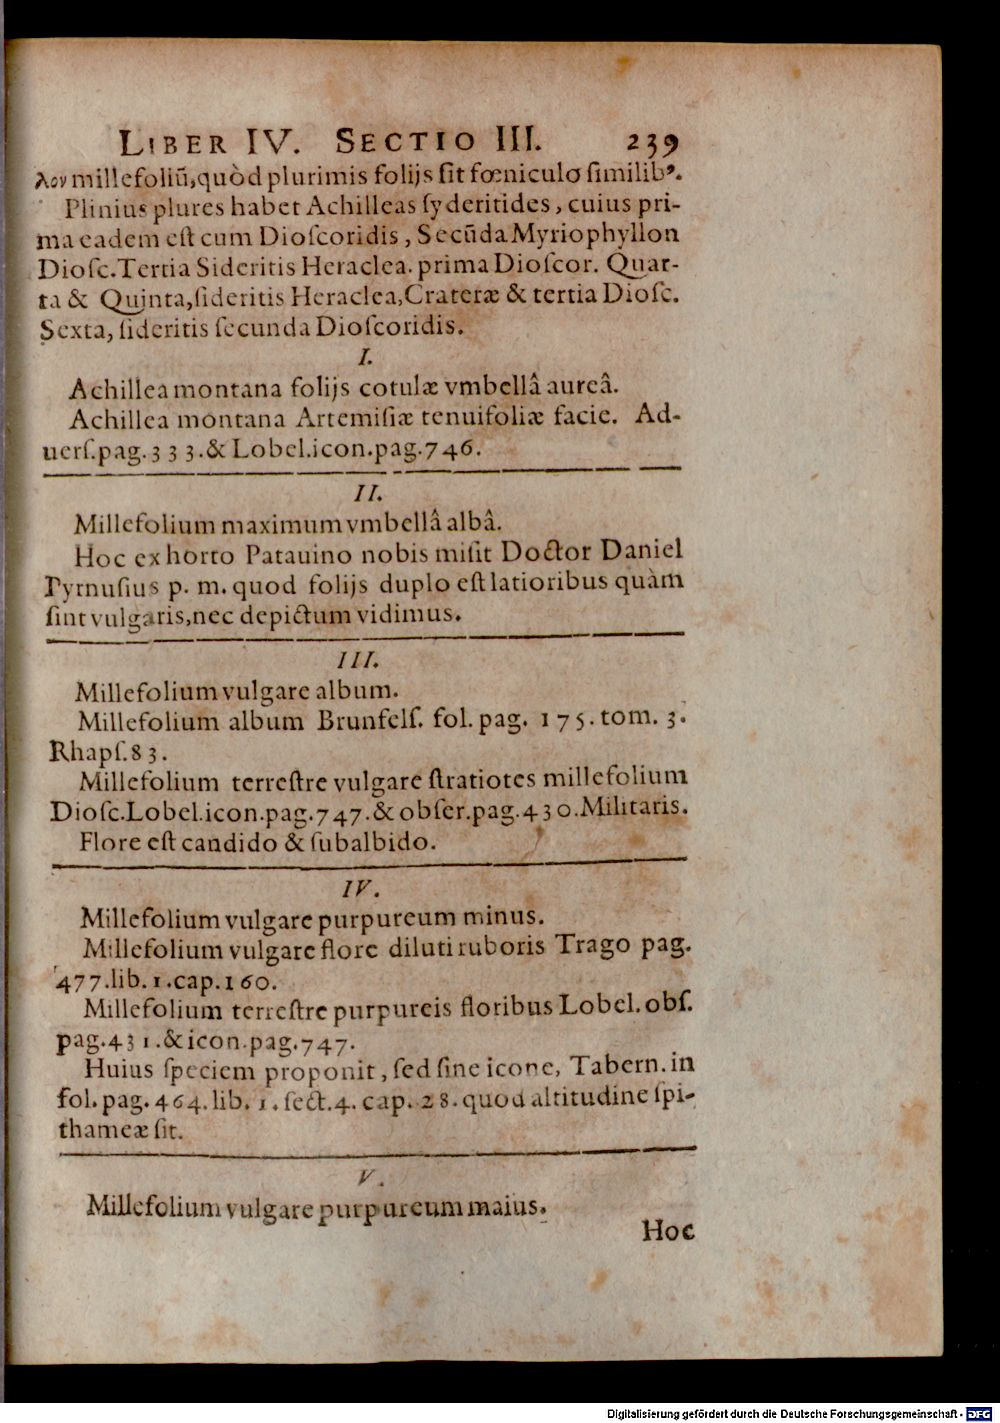 LIBER IV. SECTIO III. 239
λον millefoliū, quòd plurimis folijs ſit fœniculo ſimilibꝰ.
Plinius plures habet Achilleas ſyderitides, cuius pri-
ma eadem eſt cum Dioſcoridis, Secūda Myriophyllon
Dioſc. Tertia Sideritis Heraclea. prima Dioſcor. Quar-
ta & Quinta, ſideritis Heraclea, Crateræ & tertia Dioſc.
Sexta, ſideritis ſecunda Dioſcoridis.
I.
Achillea montana folijs cotulæ vmbellâ aureâ.
Achillea montana Artemiſiæ tenuifoliæ facie. Ad-
uerſ. pag. 333. & Lobel. icon. pag. 746.
II.
Millefolium maximum vmbellâ albâ.
Hoc ex horto Patauino nobis miſit Doctor Daniel
Pyrnuſius p. m. quod folijs duplo eſt latioribus quàm
ſint vulgaris, nec depictum vidimus.
III.
Millefolium vulgare album.
Millefolium album Brunfelſ. fol. pag. 175. tom. 3.
Rhapſ. 83.
Millefolium terreſtre vulgare ſtratiotes millefolium
Dioſc. Lobel. icon. pag. 747. & obſer. pag. 430. Militaris.
Flore eſt candido & ſubalbido.
IV.
Millefolium vulgare purpureum minus.
Millefolium vulgare flore diluti ruboris Trago pag.
477. lib. 1. cap. 160.
Millefolium terreſtre purpureis floribus Lobel. obſ.
pag. 431. & icon. pag. 747.
Huius ſpeciem proponit, ſed ſine icone, Tabern. in
fol. pag. 464. lib. 1. ſect. 4. cap. 28. quod altitudine ſpi-
thameæ ſit.
V.
Millefolium vulgare purpureum maius.
Hoc
Digitalisierung gefördert durch die Deutsche Forschungsgemeinschaft - DFG